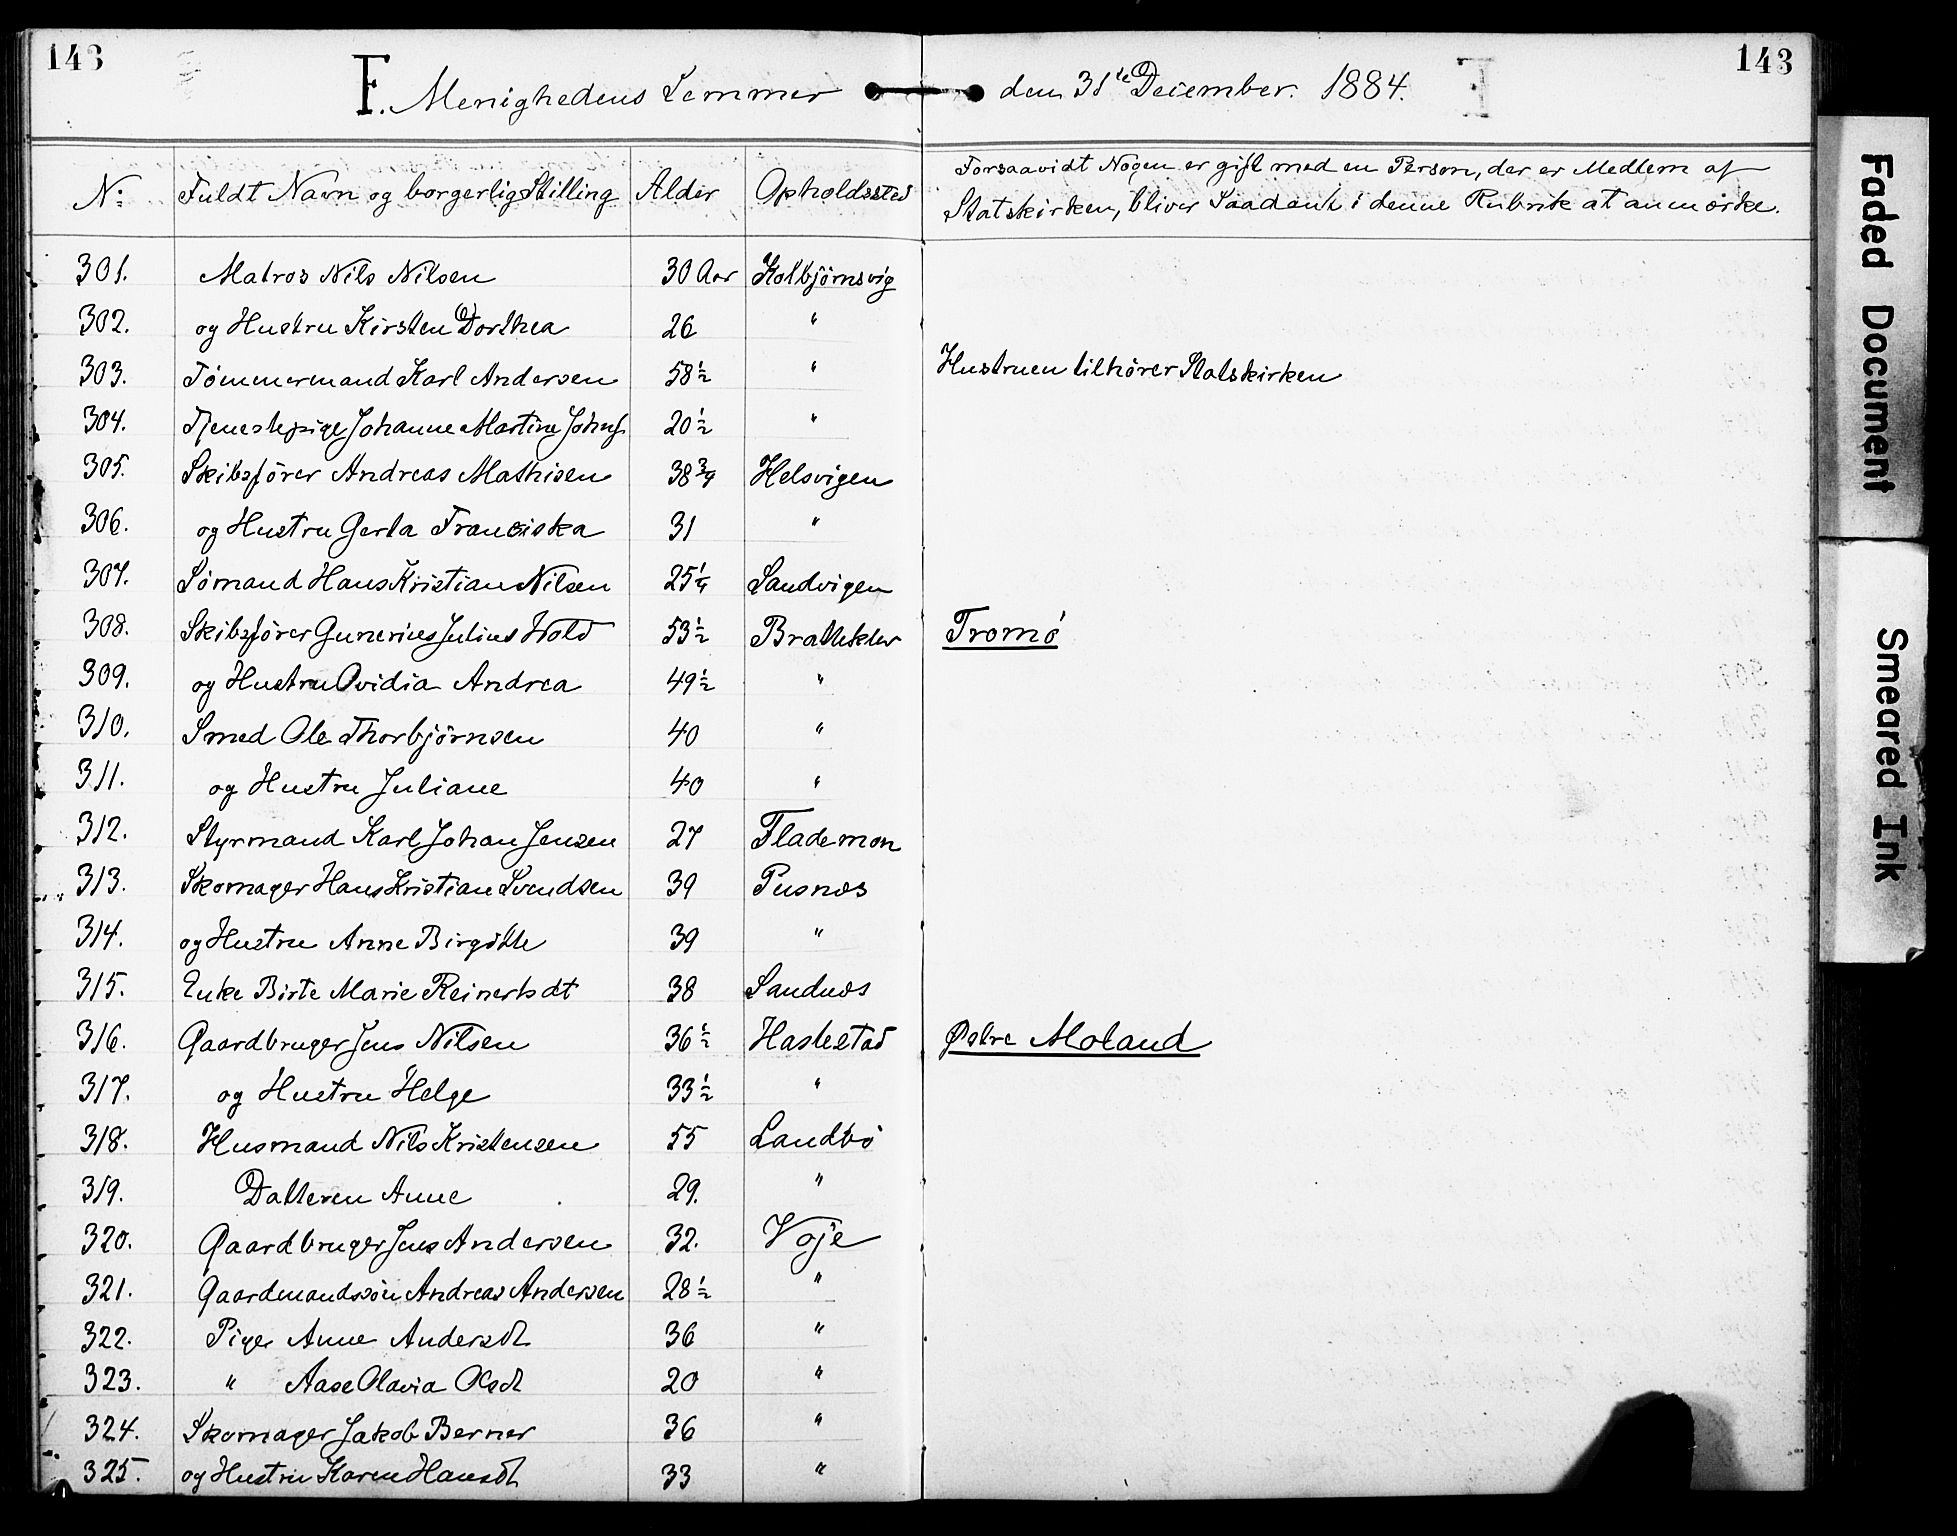 143 143
F. Menighedens Lemmer den 31te December. 1884.
No: Fuldt Navn og borgerlig Stilling Alder Opholdssted Forsaavidt Nogen er gift med en Person, der er Medlem af
Statskirken, bliver Saadant i denne Rubrik at anmærke.
301. Matros Nils Nilsen 30 Aar Kolbjørnsvig
302. og Hustru Kirsten Dorthea 26 "
303. Tømmermand Karl Andersen 58 1/2 " Hustruen tilhører Statskirken
304. Tjenestepige Johanne Martine Johnsd. 20 1/2 "
305. Skibsfører Andreas Mathisen 38 3/4 Helsvigen
306. og Hustru Gerta Franciska 31 "
307. Sømand Hans Kristian Nilsen 25 1/4 Sandvigen
308. Skibsfører Gunerius Julius Wold 53 1/2 Bratteklev Tromø
309. og Hustru Ovidia Andrea 49 1/2 "
310. Smed Ole Thorbjørnsen 40 "
311. og Hustru Juliane 40 "
312. Styrmand Karl Johan Jensen 27 Flademoen
313. Skomager Hans Kristian Svendsen 39 Pusnæs
314. og Hustru Anne Birgitte 39 "
315. Enke Birte Marie Reinertsdt 38 Sandnæs
316. Gaardbruger Jens Nilsen 36 1/2 Haslestad Østre Moland
317. og Hustru Helge 33 1/2 "
318. Husmand Nils Kristensen 55 Landbø
319. Datteren Anne 29. "
320. Gaardbruger Jens Andersen 32. Voje
321. Gaardmandssøn Andreas Andersen 28 1/2 "
322. Pige Anne Andersdt 36 "
323. " Aase Olavia Olsdt 20 "
324. Skomager Jakob Berner 36 "
325. og Hustru Karen Hansdt 33 "
Faded Document
Smeared Ink